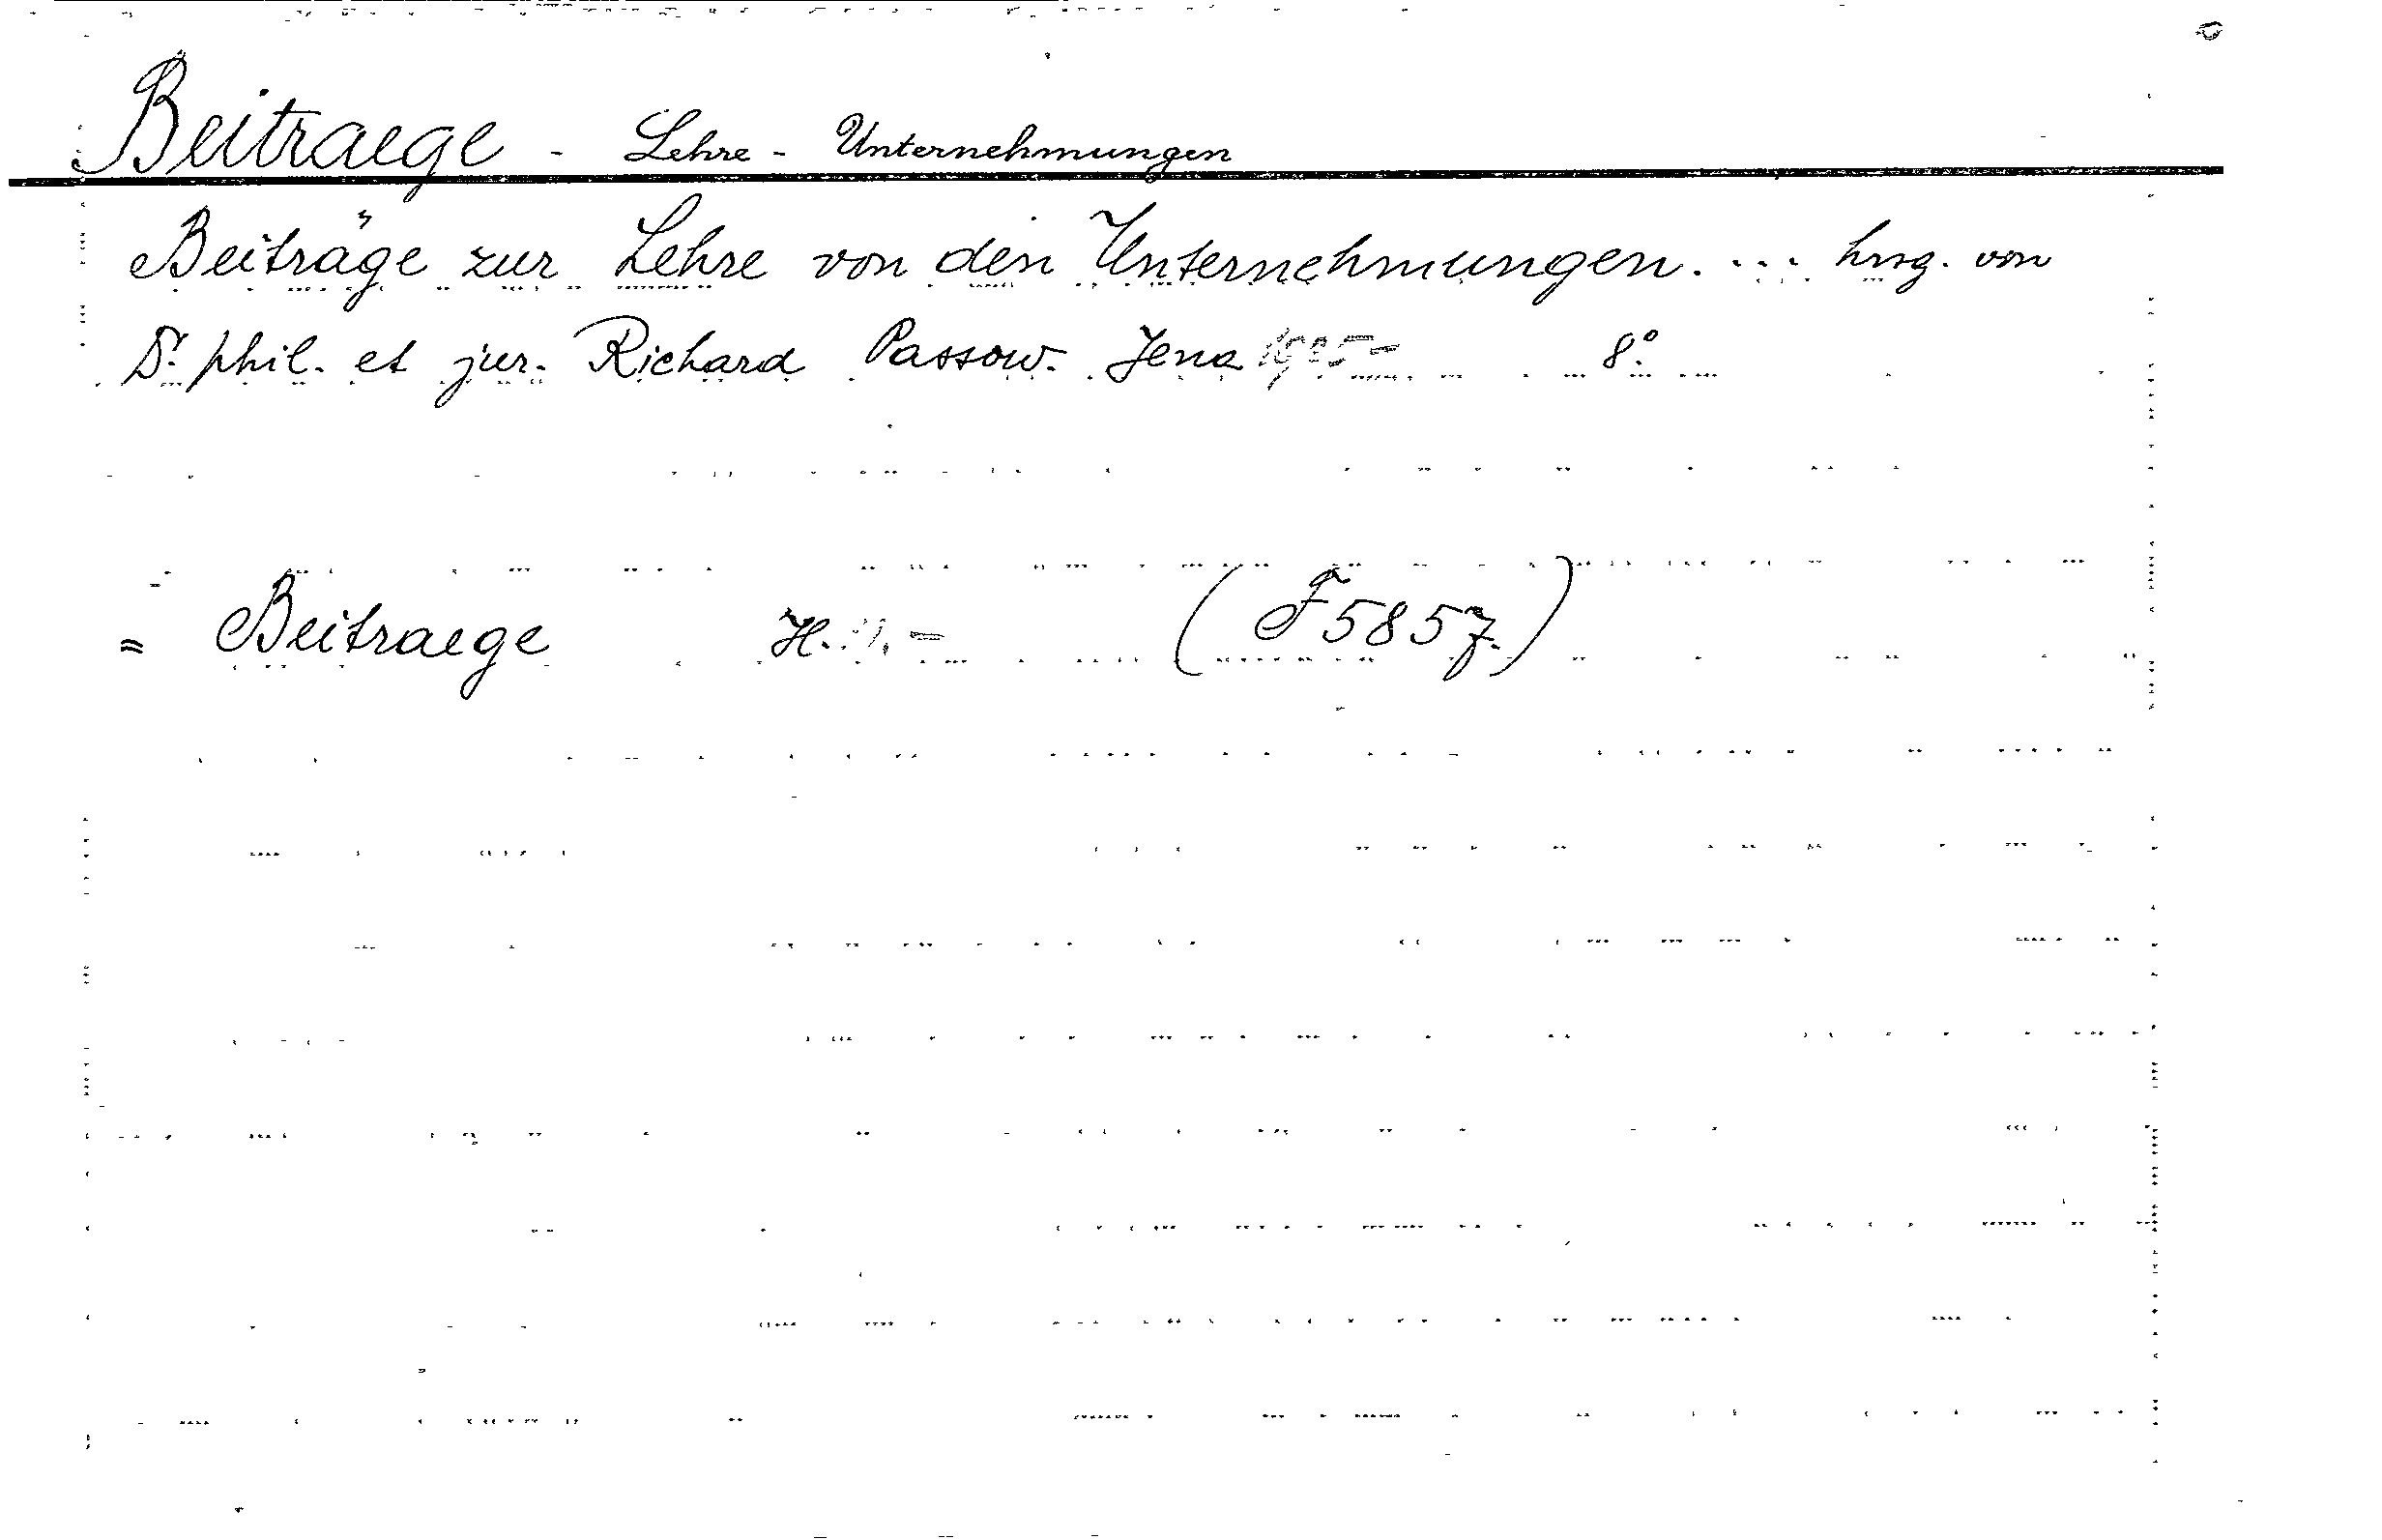 Beitraege - Lehre - Unternehmungen
Beiträge zur Lehre von den Unternehmungen. ... hrsg. von
Dr. phil. et jur. Richard Passow. Jena 1925- 8°.
= Beitraege H. - (F 5857.)